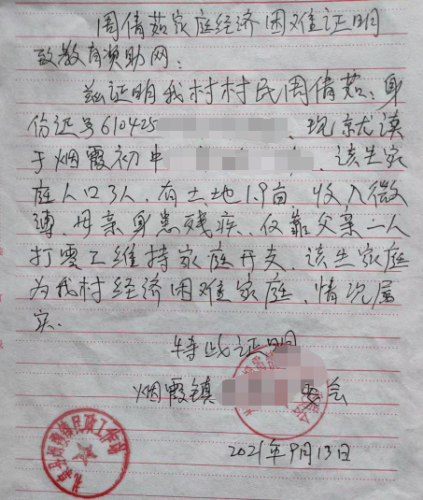 周倩茹家庭经济困难证明
致教育资助网:
兹证明我村村民周倩茹,身
份证号610425 、现就读
于烟霞初中 ,该生家
庭人口3人,有土地1.9亩,收入微
薄,母亲身患残疾,仅靠父亲一人
打零工维持家庭开支,该生家庭
为我村经济困难家庭,情况属
实.
特此证明
烟霞镇 委会
2021年9月13日